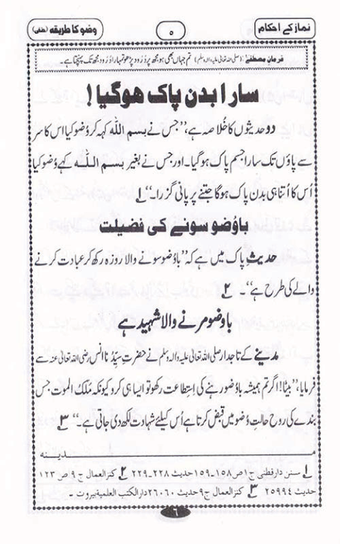 نماز کے احکام ۵ وضو کا طریقہ (حنفی)
فرمانِ مصطفےٰ: (صلی اللہ تعالیٰ علیہ والہ وسلم) تم جہاں بھی ہو مجھ پر دُرُود پڑھو تمہارا دُرُود مجھ تک پہنچتا ہے۔
سارا بدن پاک ہوگیا!
دو حدیثوں کا خلاصہ ہے، ”جس نے بسم اللہ کہہ کر وُضو کیا اس کا سر
سے پاؤں تک سارا جسم پاک ہوگیا۔ اور جس نے بغیر بسم اللہ کہے وُضو کیا
اُس کا اُتنا ہی بدن پاک ہوگا جتنے پر پانی گزرا۔“ ۱
باوُضو سونے کی فضیلت
حدیثِ پاک میں ہے کہ ”باوُضو سونے والا روزہ رکھ کر عبادت کرنے
والے کی طرح ہے“۔ ۲
باوضو مرنے والا شہید ہے
مدینے کے تاجدار صلی اللہ تعالیٰ علیہ والہ وسلم نے حضرتِ سیّدُنا انس رضی اللہ تعالیٰ عنہ سے
فرمایا، ”بیٹا! اگر تم ہمیشہ باوُضو رہنے کی اِستطاعت رکھو تو ایسا ہی کرو کیونکہ ملک الموت جس
بندے کی روح حالتِ وُضو میں قبض کرتا ہے اُس کیلئے شہادت لکھ دی جاتی ہے۔“ ۳
مدینہ
۱ سنن دارقطنی ج۱ ص ۱۵۸۔۱۵۹ حدیث ۲۲۸۔۲۲۹ ۲ کنز العمال ج ۹ ص ۱۲۳
حدیث ۲۵۹۹۴ ۳ کنز العمال ج۹ حدیث ۲۶۰۶۰ دارالکتب العلمیۃ بیروت۔
۶